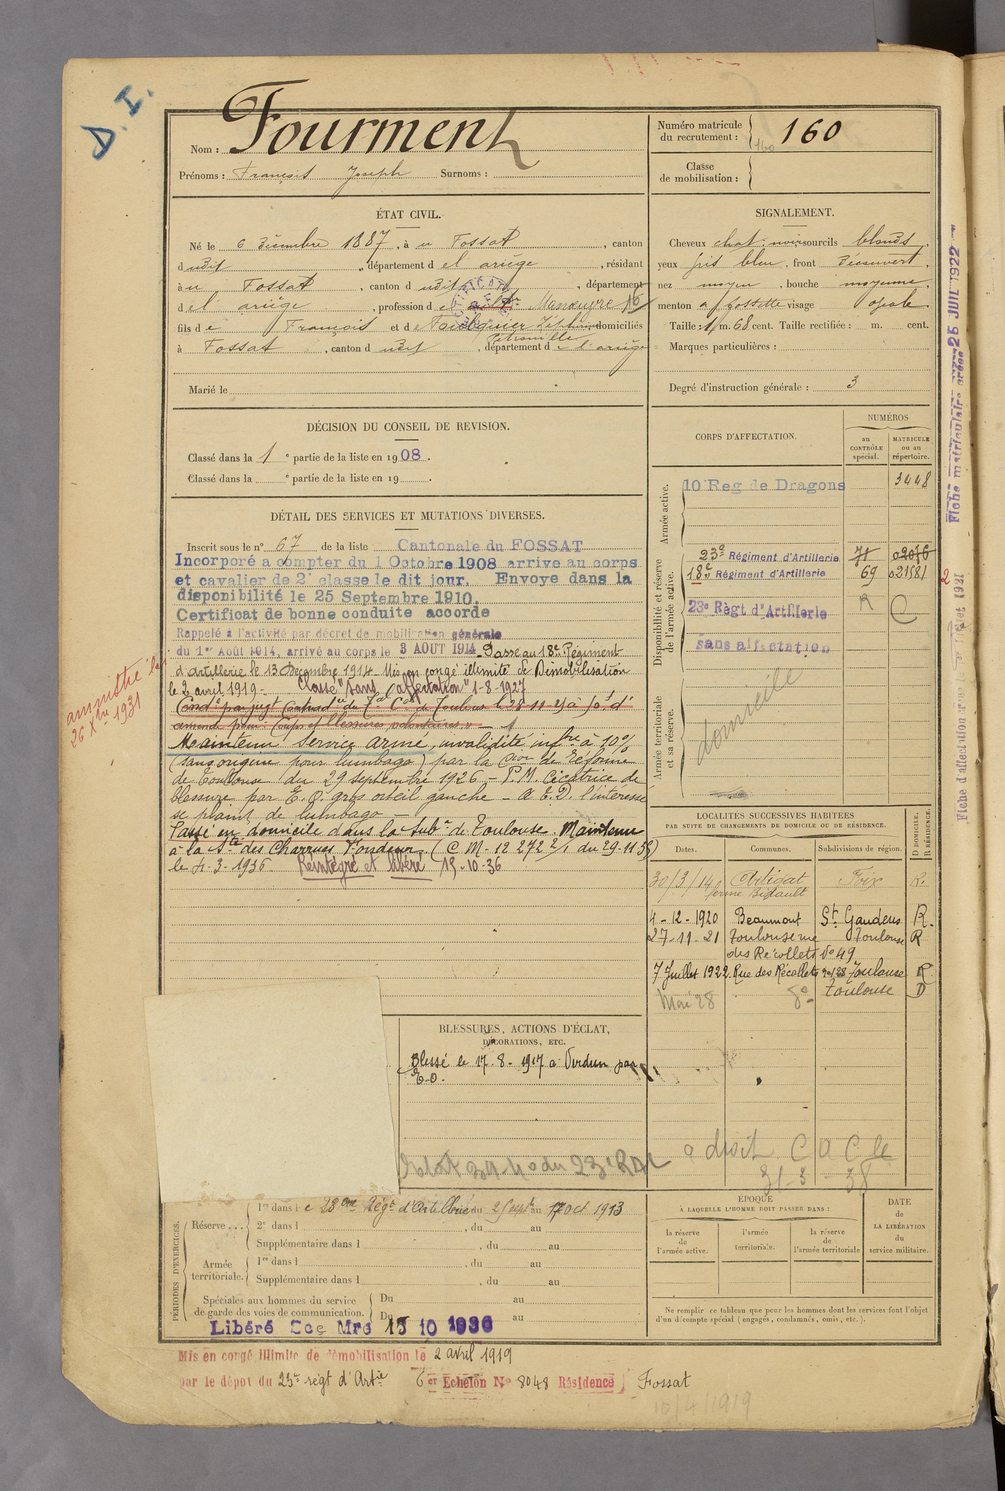 D. I.
Nom : Fourment
Prénoms : François Joseph Surnoms :
Numéro matricule du recrutement : 160
160
Classe de mobilisation :
ÉTAT CIVIL.
Né le 6 Décembre 1887, à u Fossat, canton
dudit, département d el ariège, résidant
à u Fossat, canton dudit, département
d el ariège, profession de Manœuvre 16
fils de François et de domiciliés
à Fossat, canton dudit, département de l'ariège
Marié le
SIGNALEMENT.
Cheveux chat. noir sourcils blonds,
yeux gris bleu, front Découvert,
nez moyen, bouche moyenne,
menton à fossette visage ovale
Taille : 1 m. 68 cent. Taille rectifiée : m. cent.
Marques particulières :
Degré d'instruction générale : 3
DÉCISION DU CONSEIL DE REVISION.
Classé dans la 1e partie de la liste en 1908.
Classé dans la e partie de la liste en 19 .
CORPS D'AFFECTATION.
NUMÉROS
au CONTRÔLE spécial.
MATRICULE ou au répertoire.
Armée active.
10 Reg de Dragons 3448
Disponibilité et réserve de l'armée active.
23e Régiment d'Artillerie 71
18e Régiment d'Artillerie 69 021581
23e Règt d'Artillerie R C
sans affectation
Armée territoriale et sa réserve.
domicile
DÉTAIL DES SERVICES ET MUTATIONS DIVERSES.
Inscrit sous le n° 67 de la liste Cantonale du FOSSAT
Incorporé a compter du 1 Octobre 1908 arrive au corps
et cavalier de 2e classe le dit jour. Envoye dans la
disponibilité le 25 Septembre 1910.
Certificat de bonne conduite accorde
Rappelé à l'activité par décret de mobilisation générale
du 1er Août 1914, arrivé au corps le 3 AOUT 1914. Passé au 18e Régiment
d'artillerie le 13 Décembre 1914. Mis en congé illimité de Démobilisation
le 2 avril 1919 - Classé "sans affectation" 1-8-1927
amnistié
26 Xbre 1931
amende pour "Coups et blessures volontaires"
Maintenu service armé, invalidité infre à 10%
(sans origine pour lumbago) par la Con de réforme
de Toulouse du 29 septembre 1926 - P.M. Cicatrice de
blessure par E.O. gros orteil gauche - A E.D. l'intéressé
se plaint de lumbago -
Passé en domicile dans la Subon de Toulouse. Maintenu
à la Sté des Charrues Fondeur. (C M - 12 272 2/1 du 29-11-35)
le 4-3-1936 Réintégré et libéré 15-10-36
LOCALITÉS SUCCESSIVES HABITÉES
PAR SUITE DE CHANGEMENTS DE DOMICILE OU DE RÉSIDENCE.
Dates. Communes. Subdivisions de région. D DOMICILE, R RÉSIDENCE
30/3/14 Artigat Foix R.
ferme Bidault
4-12-1920 Beaumont St Gaudens R.
27-11-21 Toulouse rue Toulouse R
des Récollets N° 49
7 Juillet 1922 Rue des Récollets Toulouse R
Mai 28 8e Toulouse D
BLESSURES, ACTIONS D'ÉCLAT,
DÉCORATIONS, ETC.
Blessé le 17-8-1917 à Verdun par
E.O.
à droit C D C le
31-3-38
PÉRIODES D'EXERCICES.
Réserve ... 1re dans le 23me Régt d'Artillerie du 25 Sept au 17 oct 1913
2e dans l , du au
Supplémentaire dans l , du au
Armée territoriale. 1re dans l , du au
Supplémentaire dans l , du au
Spéciales aux hommes du service de garde des voies de communication. Du au
Du au
Libéré Sce Mre 15 10 1936
ÉPOQUE
À LAQUELLE L'HOMME DOIT PASSER DANS :
la réserve de l'armée active.
l'armée territoriale.
la réserve de l'armée territoriale
DATE de LA LIBÉRATION du service militaire.
Ne remplir ce tableau que pour les hommes dont les services font l'objet
d'un décompte spécial (engagés, condamnés, omis, etc.).
Mis en congé illimité de démobilisation le 2 avril 1919
par le dépôt du 23e régt d'Artie 6er Echelon N° 8048 Résidence Fossat
10/4/1919
Fiche matriculaire créée 25 JUIL 1922